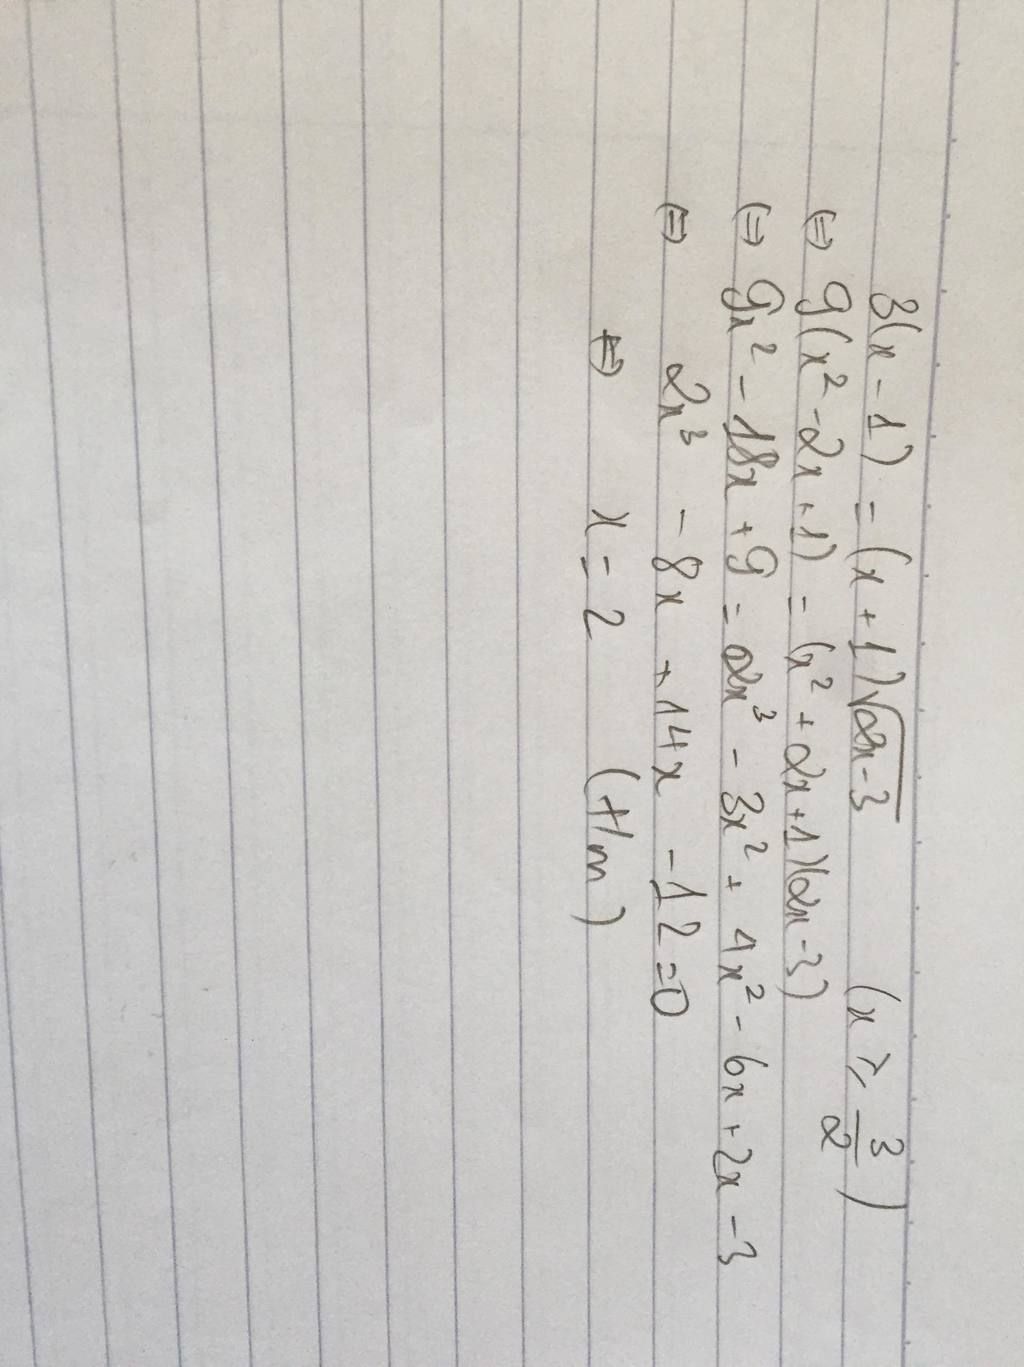 3(x - 1) = (x + 1)√(2x-3) (x ≥ 3/2)
(=) 9(x² - 2x + 1) = (x² + 2x + 1)(2x - 3)
(=) 9x² - 18x + 9 = 2x³ - 3x² + 4x² - 6x + 2x - 3
(=) 2x³ - 8x + 14x - 12 = 0
(=) x = 2 (t/m)